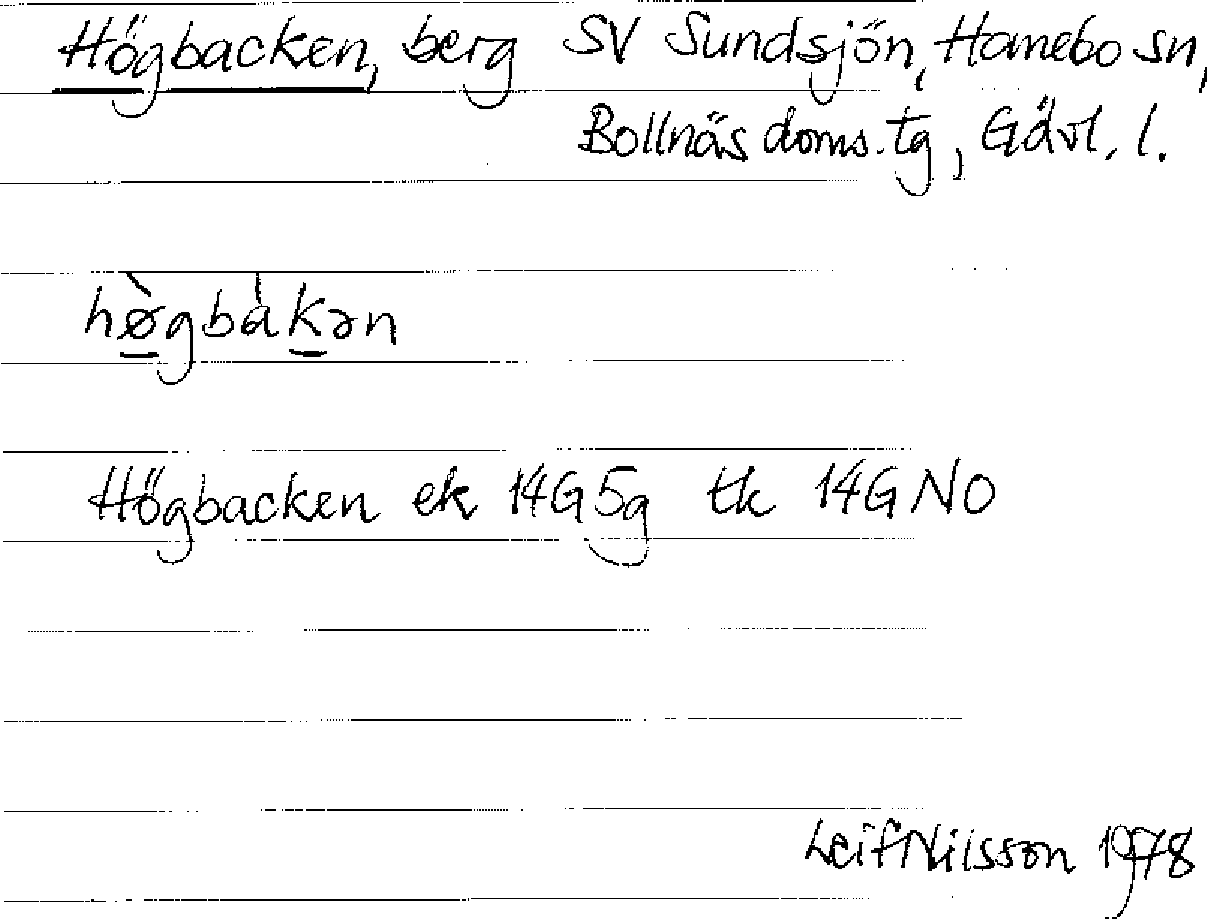 Högbacken, berg SV Sundsjön, Hamebo sn,
Bollnäs doms. tg, Gävl. l.
hø̀gbàkən
Högbacken ek 14G5g tk 14G NO
Leif Nilsson 1978